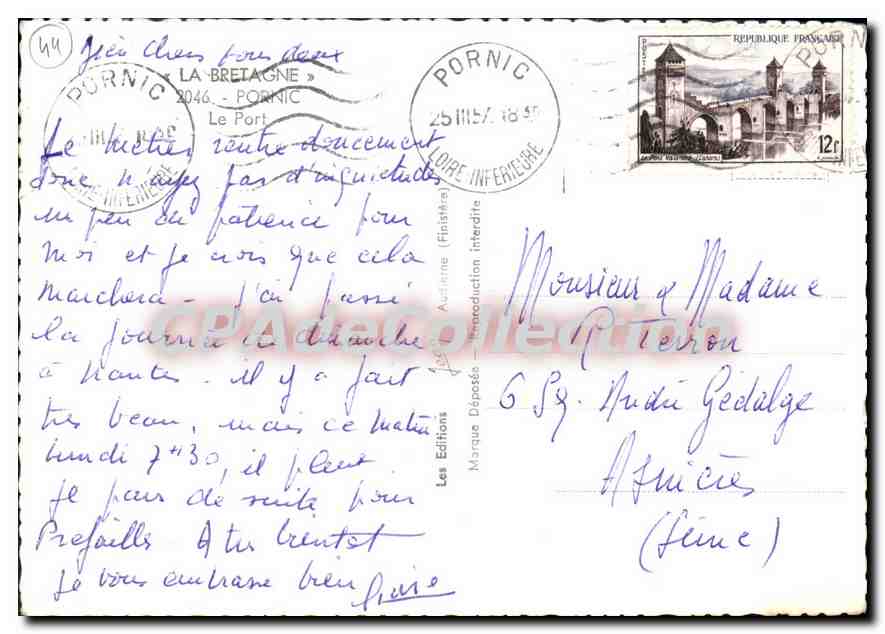 44
Bien Chers tous deux
« LA BRETAGNE »
2046. - PORNIC
Le Port
PORNIC
LOIRE-INFERIEURE
PORNIC
25 III 57 18 35
LOIRE-INFERIEURE
REPUBLIQUE FRANÇAISE
POSTES
12F
PORNIC
Le métier rentre doucement
donc n'ayez pas d'inquiétudes
un peu de patience pour
moi et je crois que cela
marchera - j'ai passé
la journée de dimanche
à Nantes. il y a fait
très beau, mais ce matin
lundi 7h30, il pleut
Je pars de suite pour
Préfailles A très bientôt
Je vous embrasse bien
Les Editions Audierne (Finistère)
Marque Déposée - Reproduction interdite
Monsieur & Madame
R. Terron
6 Sq. André Gédalge
Asnières
(Seine)
CPAdeCollection